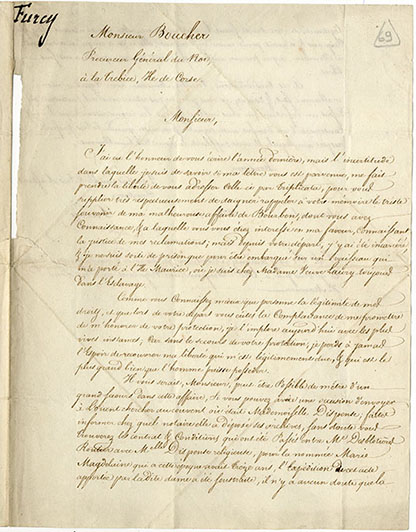 Furcy
69
Monsieur Boucher
Procureur Général du Roi,
à la Isle de Corse.
Monsieur,
J'ai eu l'honneur de vous écrire l'année dernière, mais l'incertitude
dans laquelle je suis de savoir si ma lettre vous est parvenue, me fait
prendre la liberté de vous adresser celle ci par triplicata, pour vous
supplier très respectueusement de daigner rappeler à votre mémoire le triste
souvenir de ma malheureuse affaire de Bourbon, dont vous avez
Connaissance, & à laquelle vous vous êtes intéressé en ma faveur, Connaissant
la justice de mes réclamations; mais depuis votre départ, j'y ai été incarcéré
& je ne suis sorti de prison que pour être embarqué sur un vaisseau qui
m'a porté à l'Ile Maurice, où je suis chez Madame Veuve Lory toujours
Dans l'Esclavage.
Comme vous Connaissez mieux que personne la légitimité de mes
droits, et que lors de votre départ vous eûtes la Complaisance de me promettre
de m'honorer de votre protection, je l'implore aujourd'hui avec les plus
vives instances, Car sans le secours de votre protection, je perds à jamais
l'Espoir de recouvrer ma liberté qui m'est légitimement due, & qui est le
plus grand bien que l'homme puisse posséder.
Il vous serait, Monsieur, peut être Possible de m'être d'un
grand secours dans cette affaire, Si vous pouviez avoir une occasion d'envoyer
à Lorient chercher au couvent où était Mademoiselle Dispense, faire
informer chez quel notaire elle a déposé ses archives, sans doute vous
trouverez les contrats & Conditions qui ont été Passés entre Mde Desblottières
Routier avec Melle Dispense religieuse, pour la nommée Marie
Magdelaine que a cette époque avait treize ans, l'Expédition cet acte
apportée par la dite dame a été soustraite, il n'y a aucun doute que la